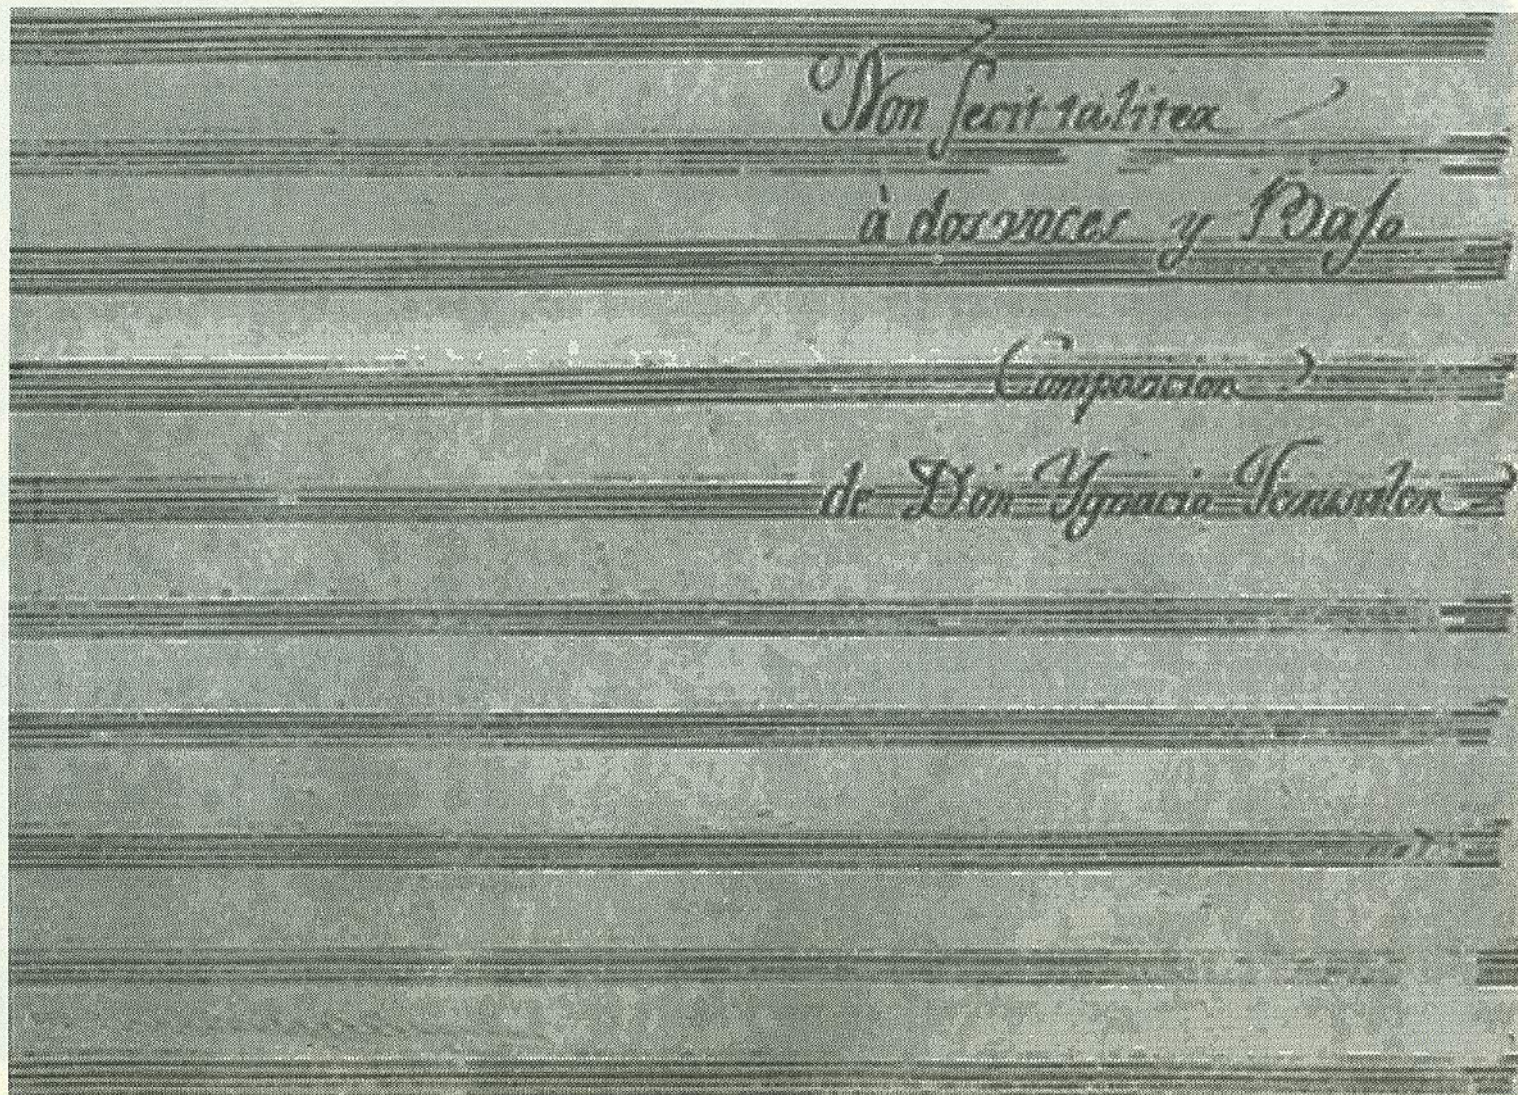 Non fecit taliter
à dos voces y Baso
Composicion
de Don Ygnacio Jerusalen